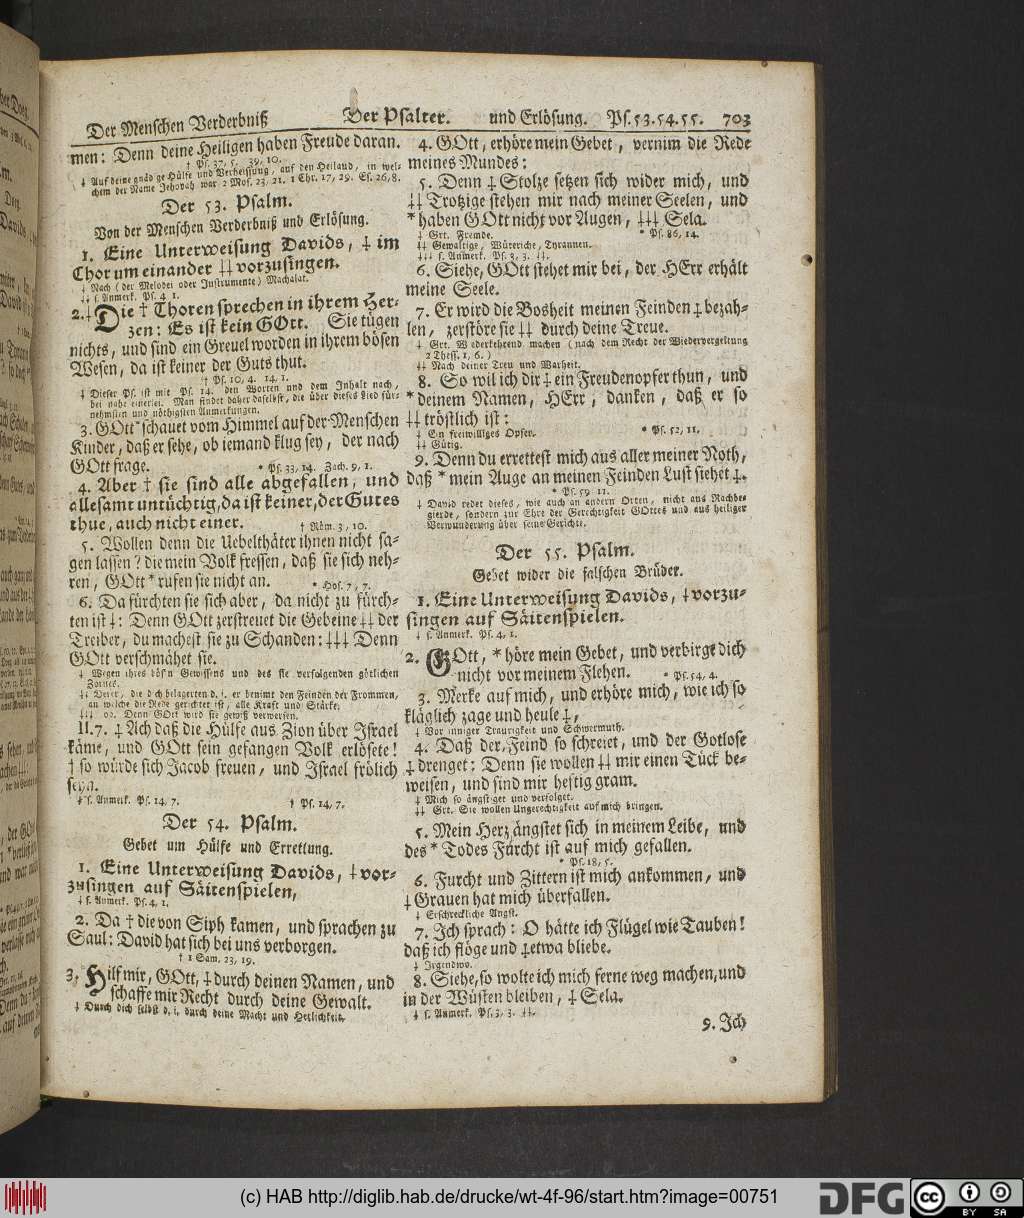 Der Menschen Verderbniß Der Psalter. und Erlösung. Ps. 53. 54. 55. 703
men: Denn deine Heiligen haben Freude daran.
† Ps. 37, 5. 39, 10.
‡ Auf deine gnädge Hülfe und Verheissung, auf den Heiland, in wel-
chem der Name Jehovah war 2 Mos. 23, 21. 1 Chr. 17, 29. Es. 26, 8.
Der 53. Psalm.
Von der Menschen Verderbniß und Erlösung.
1. Eine Unterweisung Davids, ‡ im
Chor um einander ‡‡ vorzusingen.
‡ Nach (der Melodei oder Instrumente) Machalat.
‡‡ s. Anmerk. Ps. 4, 1.
2.‡ Die † Thoren sprechen in ihrem Her-
zen: Es ist kein GOtt. Sie tügen
nichts, und sind ein Greuel worden in ihrem bösen
Wesen, da ist keiner der Guts thut.
† Ps. 10, 4. 14, 1.
‡ Dieser Ps. ist mit Ps. 14. den Worten und dem Inhalt nach,
bei nahe einerlei. Man findet daher daselbst, die über dieses Lied für-
nehmsten und nöthigsten Anmerkungen.
3. GOtt * schauet vom Himmel auf der Menschen
Kinder, daß er sehe, ob iemand klug sey, der nach
GOtt frage. * Ps. 33, 14. Zach. 9, 1.
4. Aber † sie sind alle abgefallen, und
allesamt untüchtig, da ist keiner, der Gutes
thue, auch nicht einer. † Röm. 3, 10.
5. Wollen denn die Uebelthäter ihnen nicht sa-
gen lassen? die mein Volk fressen, daß sie sich neh-
ren, GOtt * rufen sie nicht an. * Hos. 7, 7.
6. Da fürchten sie sich aber, da nicht zu fürch-
ten ist ‡: Denn GOtt zerstreuet die Gebeine ‡‡ der
Treiber, du machest sie zu Schanden: ‡‡‡ Denn
GOtt verschmähet sie.
‡ Wegen ihres bös'n Gewissens und des sie verfolgenden götlichen
Zornes.
‡‡ Derer, die dich belagerten d. i. er benimt den Feinden der Frommen,
an welche die Rede gerichtet ist, alle Kraft und Stärke.
‡‡‡ od. Denn GOtt wird sie gewiß verwerfen.
II. 7. ‡ Ach daß die Hülfe aus Zion über Israel
käme, und GOtt sein gefangen Volk erlösete!
† so würde sich Jacob freuen, und Israel frölich
seyn.
‡ s. Anmerk. Ps. 14, 7. † Ps. 14, 7.
Der 54. Psalm.
Gebet um Hülfe und Errettung.
1. Eine Unterweisung Davids, ‡ vor-
zusingen auf Säitenspielen,
‡ s. Anmerk. Ps. 4, 1.
2. Da † die von Siph kamen, und sprachen zu
Saul: David hat sich bei uns verborgen.
† 1 Sam. 23, 19.
3. Hilf mir, GOtt, ‡ durch deinen Namen, und
schaffe mir Recht durch deine Gewalt.
‡ Durch dich selbst d. i. durch deine Macht und Herlichkeit.
4. GOtt, erhöre mein Gebet, vernim die Rede
meines Mundes:
5. Denn ‡ Stolze setzen sich wider mich, und
‡‡ Trotzige stehen mir nach meiner Seelen, und
* haben GOtt nicht vor Augen, ‡‡‡ Sela.
‡ Grt. Fremde. * Ps. 86, 14.
‡‡ Gewaltige, Wüteriche, Tyrannen.
‡‡‡ s. Anmerk. Ps. 3, 3. ‡‡.
6. Siehe, GOtt stehet mir bei, der HErr erhält
meine Seele.
7. Er wird die Bosheit meinen Feinden ‡ bezah-
len, zerstöre sie ‡‡ durch deine Treue.
‡ Grt. Wiederkehrend machen (nach dem Recht der Wiedervergeltung
2 Thess. 1, 6.)
‡‡ Nach deiner Treu und Warheit.
8. So wil ich dir ‡ ein Freudenopfer thun, und
* deinem Namen, HErr, danken, daß er so
‡‡ tröstlich ist:
‡ Ein freiwilliges Opfer. * Ps. 52, 11.
‡‡ Gütig.
9. Denn du errettest mich aus aller meiner Noth,
daß * mein Auge an meinen Feinden Lust siehet ‡.
* Ps. 59. 11.
‡ David redet dieses, wie auch an andern Orten, nicht aus Rachbe-
gierde, sondern zur Ehre der Gerechtigkeit GOttes und aus heiliger
Verwunderung über seine Gerichte.
Der 55. Psalm.
Gebet wider die falschen Brüder.
1. Eine Unterweisung Davids, ‡ vorzu-
singen auf Säitenspielen.
‡ s. Anmerk. Ps. 4, 1.
2. GOtt, * höre mein Gebet, und verbirge dich
nicht vor meinem Flehen. * Ps. 54, 4.
3. Merke auf mich, und erhöre mich, wie ich so
kläglich zage und heule ‡,
‡ Vor inniger Traurigkeit und Schwermuth.
4. Daß der Feind so schreiet, und der Gotlose
‡ drenget: Denn sie wollen ‡‡ mir einen Tück be-
weisen, und sind mir heftig gram.
‡ Mich so ängstiget und verfolget.
‡‡ Grt. Sie wollen Ungerechtigkeit auf mich bringen.
5. Mein Herz ängstet sich in meinem Leibe, und
des * Todes Furcht ist auf mich gefallen.
* Ps. 18, 5.
6. Furcht und Zittern ist mich ankommen, und
‡ Grauen hat mich überfallen.
‡ Erschreckliche Angst.
7. Ich sprach: O hätte ich Flügel wie Tauben!
daß ich flöge und ‡ etwa bliebe.
‡ Irgendwo.
8. Siehe, so wolte ich mich ferne weg machen, und
in der Wüsten bleiben, ‡ Sela.
‡ s. Anmerk. Ps. 3, 3. ‡‡.
9. Ich
(c) HAB http://diglib.hab.de/drucke/wt-4f-96/start.htm?image=00751
DFG cc BY SA